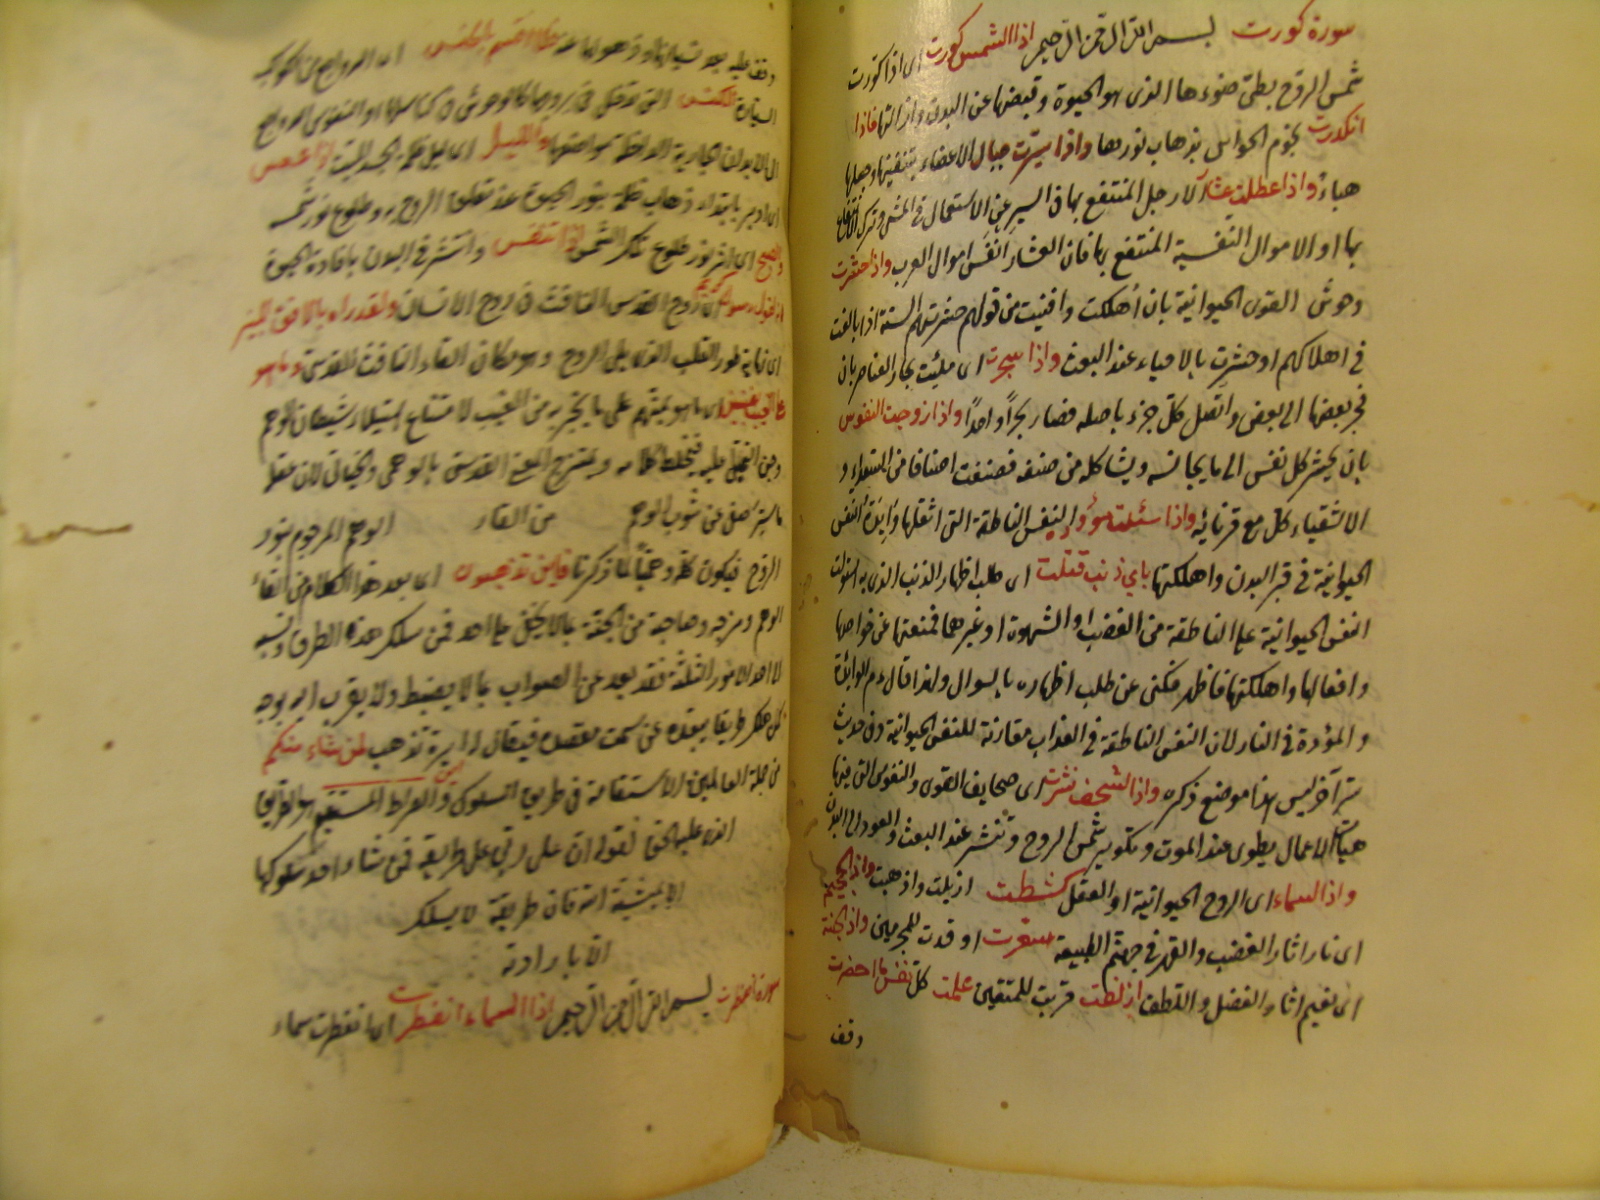 سورة كورت بسم الله الرحمن الرحيم اذا الشمس كورت اى اذا كورت
شمس الروح بطى ضوءها الذى هو الحيوة وقبضها عن البدن وازالتها فاذا
انكدرت نجوم الحواس بذهاب نورها واذا سيرت جبال الاعضاء بتفتيتها وجعلها
هباء واذا عطلت عشار الارجل المنتفع بها فى السير عن الاستعمال فى المشى وترك الانتفاع
بها او الاموال النفسية المنتفع بها فان العشار انفس اموال العرب واذا حشرت
وحوش القوى الحيوانية بان اهلكت وافنيت من قولهم حشرتهم السنة اذا بالغت
فى اهلاكهم او حشرت بالاحياء عند البعث واذا سجرت اى ملئت بحار العناصر بان
فجر بعضها الى بعض واتصل كل جزء باصله فصار بحرًا واحدًا واذا زوجت النفوس
بان يحشر كل نفس الى ما يجانسه ويشاكله من صنفه فصنفت اصنافا من السعداء و
الاشقياء كل مع قرنائه واذا سئلت موؤدة النفس الناطقة التى اثقلها وائدة النفس
الحيوانية فى قبر البدن واهلكتها باى ذنب قتلت اى طلب اظهار الذنب الذى به استولت
النفس الحيوانية على الناطقة من الغضب او الشهوة او غيرهما فمنعتها عن خواصها
وافعالها واهلكتها فاظهر فكنى عن طلب اظهاره بالسوال ولهذا قال عم الوائدة
والمؤدة فى النار لان النفس الناطقة فى العذاب مقارنة للنفس الحيوانية وفى حديث
سر آخر ليس هذا موضع ذكره واذا الصحف نشرت اى صحايف القوى والنفوس التى فيها
هيئات الاعمال يطوى عند الموت وتكوير شمس الروح وتنشر عند البعث والعود الى البدن
واذا السماء اى الروح الحيوانية او العقل كشطت ازيلت واذهبت واذا الجحيم
اى نار اثار الغضب والقهر فى جهنم الطبيعة سعرت اوقدت للمجرمين واذا الجنة
اى نعيم اثار الفضل واللطف ازلفت قربت للمتقين علمت كل نفس ما احضرت
وقف
وقف عليه بعد فلا اقسم بالخنس اى الرواجع من الكواكب
السيارة الكنس التى تدخل فى بروجها كالوحوش فى كناسها او النفوس الرواجع
الى الابدان والليل اى ليل ظلمة الجسد الميتة اذا عسعس
اى ادبر بابتداء ذهاب ظلمته بنور الحيوة عند تعلق الروح به وطلوع نور شمسه
والصبح اى اثر نور طلوع تلك الشمس اذا تنفس وانتشر فى البدن بافادة الحيوة
انه لقول رسول كريم اى روح القدس النافث فى روع الانسان ولقد راه بالافق المبين
اى نهاية طور القلب الذى يلى الروح وهو مكان القاء النافث القدسى وما هو
على الغيب بضنين اى ما هو بمتهم على ما يخبر به من الغيب لامتناع استيلاء شيطان الوهم
وجن التخيل عليه فيخلط كلامه ويمتزج المعنى القدسى بالوهمى والخيالى لان عقله
ما ستر بل صفى عن شوب الوهم من القاء الوهم المرجوم بنور
الروح فيكون كلاما وهميًا لما ذكرنا فاين تذهبون اى بعد هذا الكلام من القاء
الوهم ومزجه وصاحبه من الجنة بما لا يخفى على احد فمن سلك هذه الطرق ونسبه
لاحد الامور الثلثة فقد بعد عن الصواب بما لا يضبط ولا يقرب اليه بوجه
كمن سلك طريقا يبعده عن سمت مقصده فيقال له اين تذهب لمن شاء منكم
من جملة العالمين الاستقامة فى طريق السلوك والصراط المستقيم هو الطريق
الذى عليه الحق لقوله ان على ربى على طريقه فمن يشاء احد سلوكها
الا بمشية الله فان طريقه لا يسلك
الا بارادته
سورة انفطرت بسم الله الرحمن الرحيم اذا السماء انفطرت اى انفطرت سماء